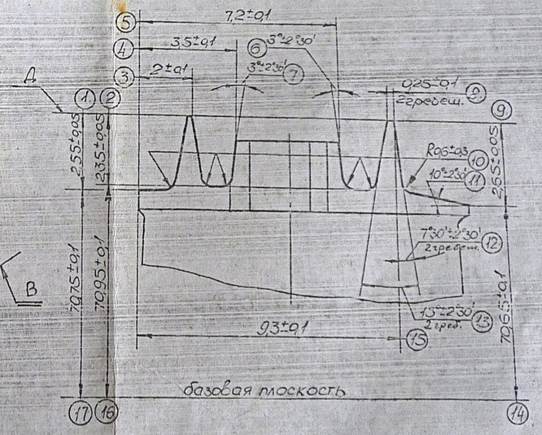 ⑤ 7,2±0,1
④ 3,5±0,1 ⑥ 3°±2°30'
③ 2±0,1 3°±2°30' ⑦ 0,25±0,1 ⑧
Д ① ② 2 гребеш. ⑨
2,55±0,05 2,35±0,05 R0,6±0,3 ⑩ 2,65±0,05
10°±2°30' ⑪
7°30'±2°30' ⑫
2 гребеш.
В 70,75±0,1 70,95±0,1 15°±2°30' ⑬ 70,65±0,1
2 греб.
9,3±0,1 ⑮
базовая плоскость
⑰ ⑯ ⑭